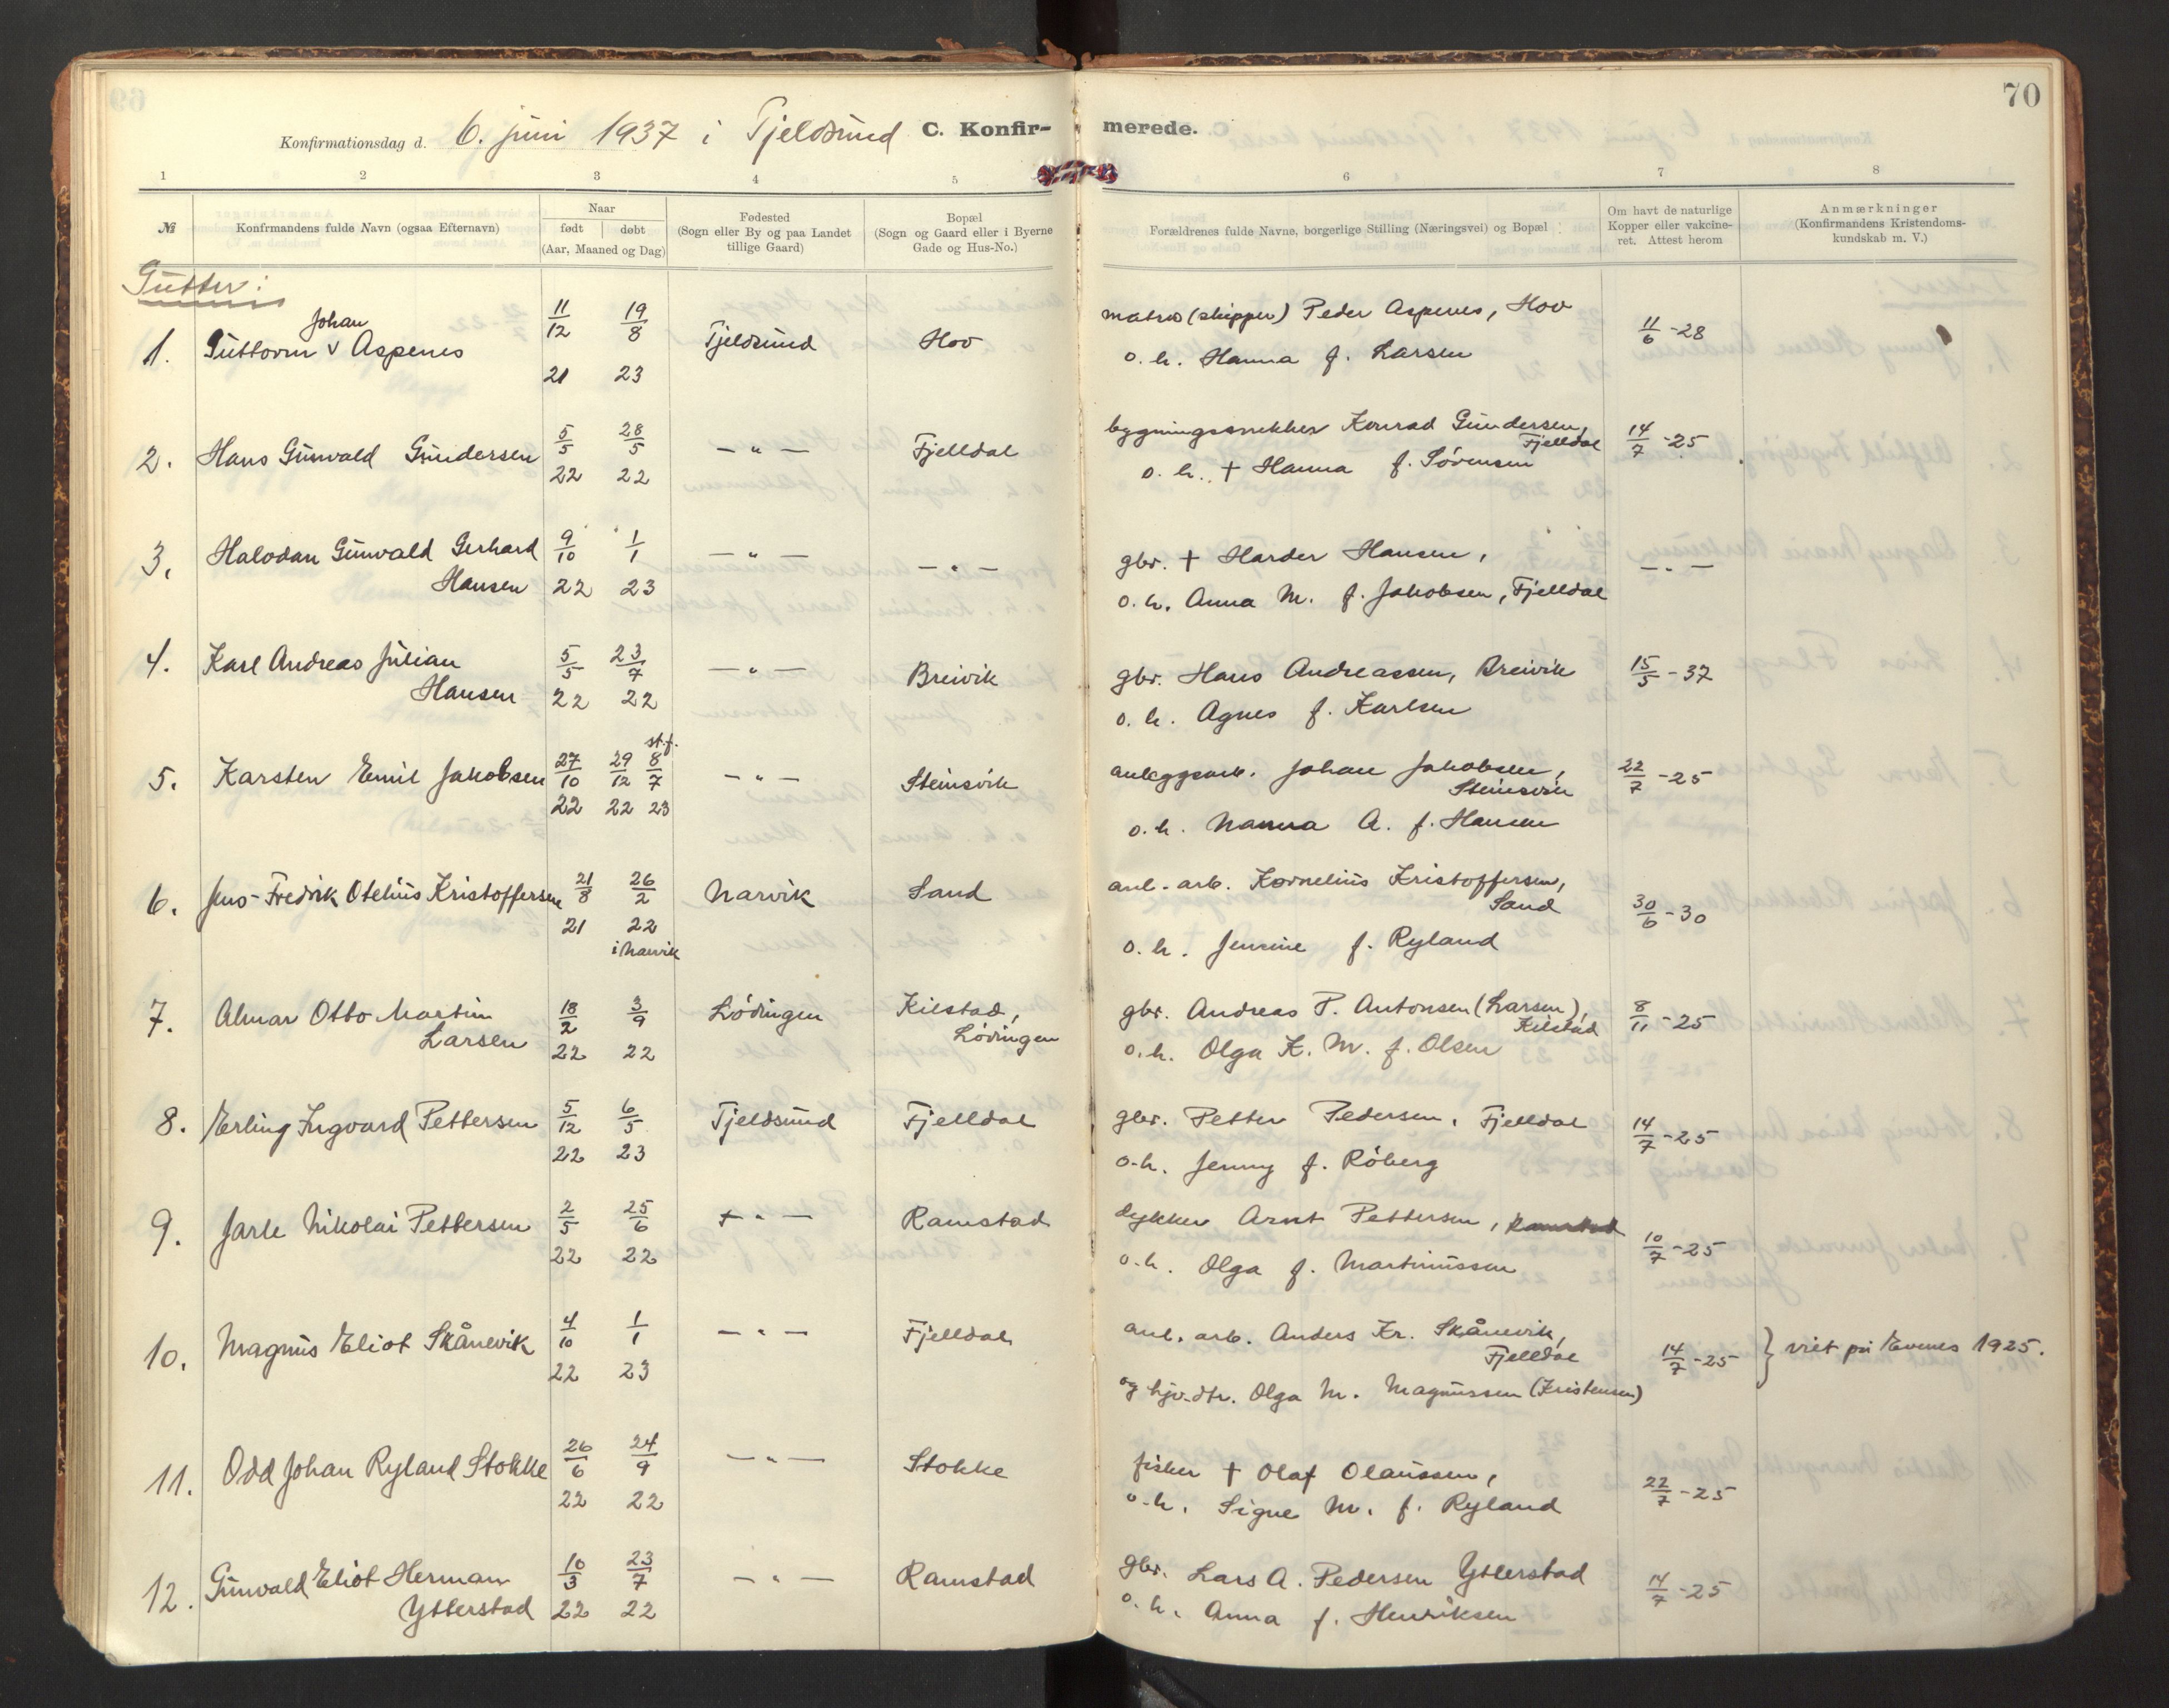 70
Konfirmationsdag d. 6. juni 1937 i Tjeldsund C. Konfir- merede.
1 2 3 4 5 6 7 8
№ Konfirmandens fulde Navn (ogsaa Efternavn)
Naar
født døbt
(Aar, Maaned og Dag)
Fødested
(Sogn eller By og paa Landet
tillige Gaard)
Bopæl
(Sogn og Gaard eller i Byerne
Gade og Hus-No.)
Forældrenes fulde Navne, borgerlige Stilling (Næringsvei) og Bopæl
Om havt de naturlige
Kopper eller vakcine-
ret. Attest herom
Anmærkninger
(Konfirmandens Kristendoms-
kundskab m. V.)
Gutter:
Johan 11/12 19/8 matros (skipper) Peder Aspenes, Hov
1. Guttorm v Aspenes Tjeldsund Hov 11/6-28
21 23 o. h. Hanna f. Larsen
5/5 28/5 bygningssnekker Konrad Gundersen,
2. Hans Gunvald Gundersen — " — Fjelldal Fjelldal 14/7-25
22 22 o. h. † Hanna f. Sørensen
3. Halvdan Gunvald Gerhard 9/10 1/1 — " — — " — gbr. † Harder Hansen, — " —
Hansen 22 23 o. h. Anna M. f. Jakobsen, Fjelldal
4. Karl Andreas Julian 5/5 23/7 — " — Breivik gbr. Hans Andreassen, Breivik 15/5-37
Hansen 22 22 o. h. Agnes f. Karlsen
st.f.
5. Karsten Emil Jakobsen 27/10 29/12 8/7 — " — Steinsvik anleggsarb. Johan Jakobsen, 22/7-25
Steinsvik
22 22 23 o. h. Nanna A. f. Hansen
6. Jens-Fredrik Otelius Kristoffersen 21/8 26/2 Narvik Sand anl.-arb. Kornelius Kristoffersen,
Sand 30/6-30
21 22 o. h. Jensine f. Ryland
i Narvik
7. Almar Otto Martin 18/2 3/9 Lødingen Kilstad, gbr. Andreas P. Antonsen (Larsen), 8/11-25
Larsen Lødingen Kilstad
22 22 o. h. Olga K. M. f. Olsen
8. Erling Ingvard Pettersen 5/12 6/5 Tjeldsund Fjelldal gbr. Petter Pedersen, Fjelldal 14/7-25
22 23 o. h. Jenny f. Røberg
9. Jarle Nikolai Pettersen 2/5 25/6 — " — Ramstad dykker Arnt Pettersen, Ramstad 10/7-25
22 22 o. h. Olga f. Martinussen
10. Magnus Eliot Skånevik 4/10 1/1 — " — Fjelldal anl. arb. Anders Kr. Skånevik,
Fjelldal 14/7-25 } vist på Evenes 1925.
22 23 og hjv. dtr. Olga M. Magnussen (Kristensen)
11. Odd Johan Ryland Stokke 26/6 24/9 — " — Stokke fisker † Olaf Olaussen, 22/7-25
22 22 o. h. Signe M. f. Ryland
12. Gunvald Eliot Herman 10/3 23/7 — " — Ramstad gbr. Lars A. Pedersen Ytterstad 14/7-25
Ytterstad 22 22 o. h. Anna f. Henriksen